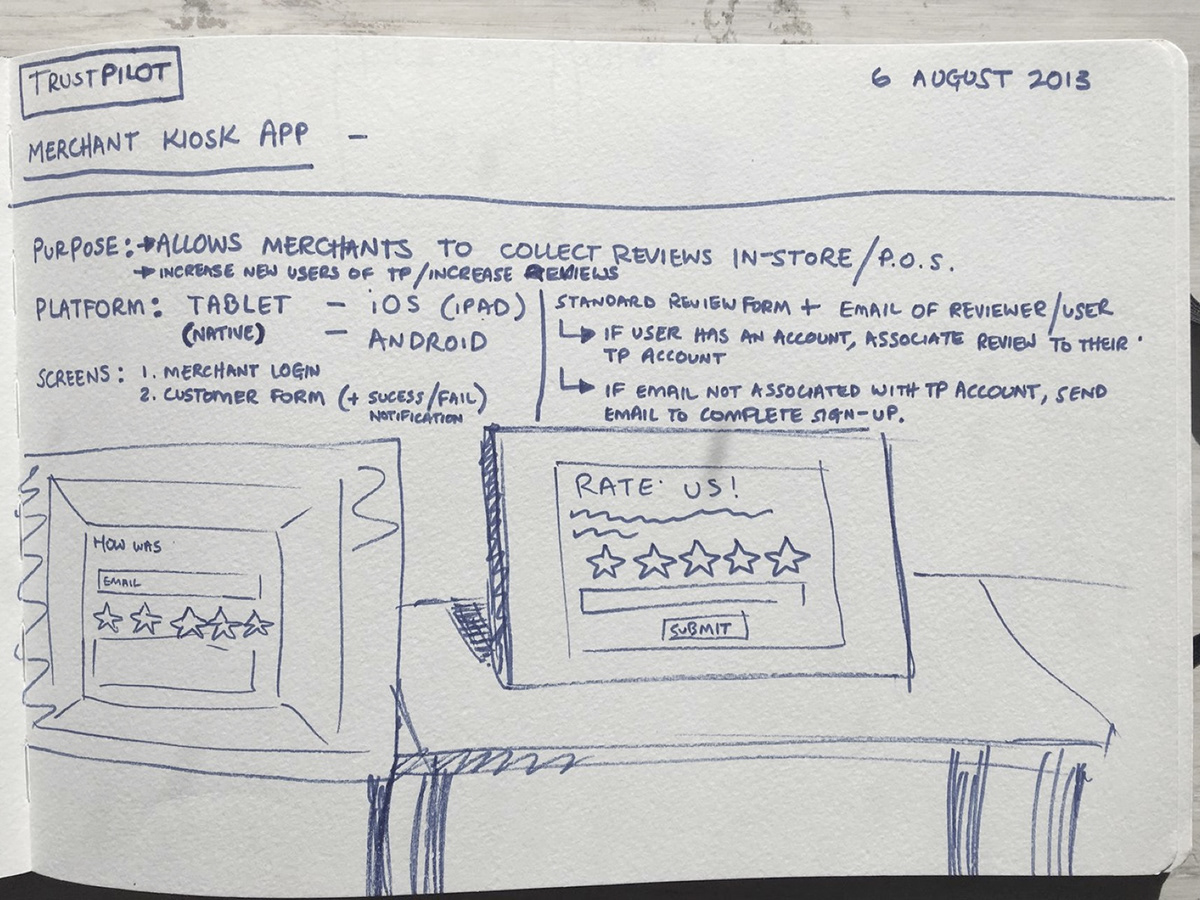 TRUSTPILOT
6 AUGUST 2013
MERCHANT KIOSK APP –
PURPOSE: → ALLOWS MERCHANTS TO COLLECT REVIEWS IN-STORE/P.O.S.
→ INCREASE NEW USERS OF TP/INCREASE REVIEWS
PLATFORM: TABLET – iOS (iPAD)
(NATIVE) – ANDROID
SCREENS: 1. MERCHANT LOGIN
2. CUSTOMER FORM (+ SUCESS/FAIL)
NOTIFICATION
STANDARD REVIEW FORM + EMAIL OF REVIEWER/USER
↳ IF USER HAS AN ACCOUNT, ASSOCIATE REVIEW TO THEIR
TP ACCOUNT
↳ IF EMAIL NOT ASSOCIATED WITH TP ACCOUNT, SEND
EMAIL TO COMPLETE SIGN-UP.
HOW WAS
EMAIL
RATE US!
SUBMIT